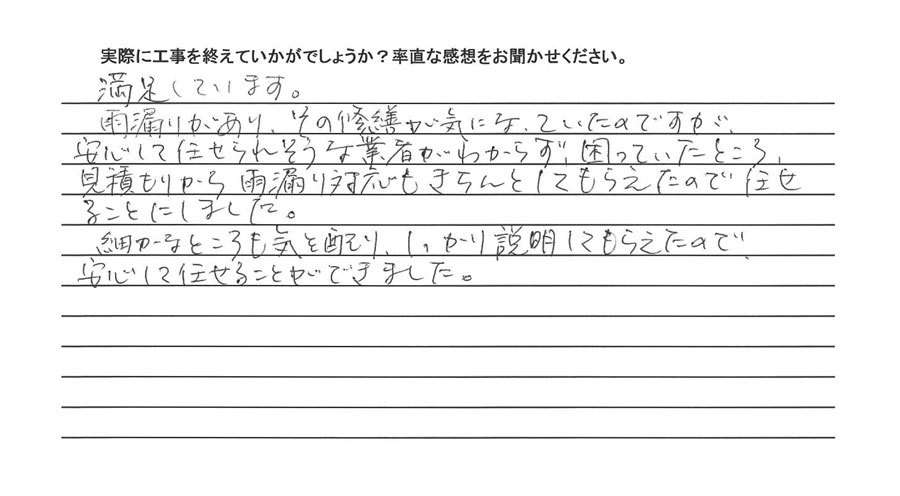 実際に工事を終えていかがでしょうか？率直な感想をお聞かせください。
満足しています。
雨漏りがあり、その修繕が気になっていたのですが、
安心して任せられそうな業者がわからず、困っていたところ、
見積もりから雨漏り対応もきちんとしてもらえたので任せ
ることにしました。
細かなところも気を配り、しっかり説明してもらえたので
安心して任せることができました。